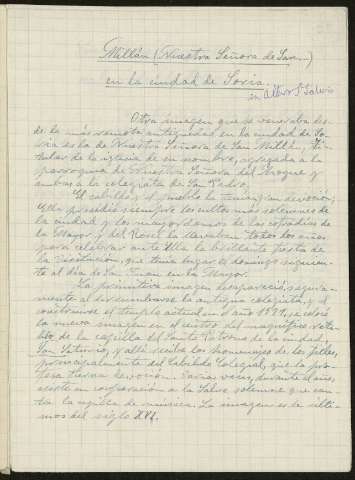 Millán (Nuestra Señora de San...)
en la ciudad de Soria.
Otra imagen que se veneraba des
de la más remota antigüedad en la ciudad de So
ria es la de Nuestra Señora de San Millán, ti-
tular de la iglesia de su nombre, agregada a la
parroquia de Nuestra Señora del Azogue y
ambas a la colegiata de San Pedro.
El cabildo y el pueblo la tenían gran devoción;
Ella presidía siempre los cultos más solemnes de
la ciudad y los mayordomos de las cofradías de
la Mayor y del Rosel la llevaban todos los años
para celebrar ante Ella la brillante fiesta de
la Visitación, que tenía lugar el domingo siguien-
te al día de San Juan en la Mayor.
La primitiva imagen desapareció segura-
mente al derrumbarse la antigua colegiata, y al
construirse el templo actual en el año se colocó
la nueva imagen en el centro del magnífico reta-
blo de la capilla del Santo Patrono de la ciudad,
San Saturio, y allí recibe los homenajes de los fieles,
principalmente del Cabildo Colegial, que la pro-
fesa tierna devoción. Varias veces, durante el año,
asiste en corporación a la Salve solemne que can-
ta la capilla de música. La imagen es de últi-
mos del siglo XVI.